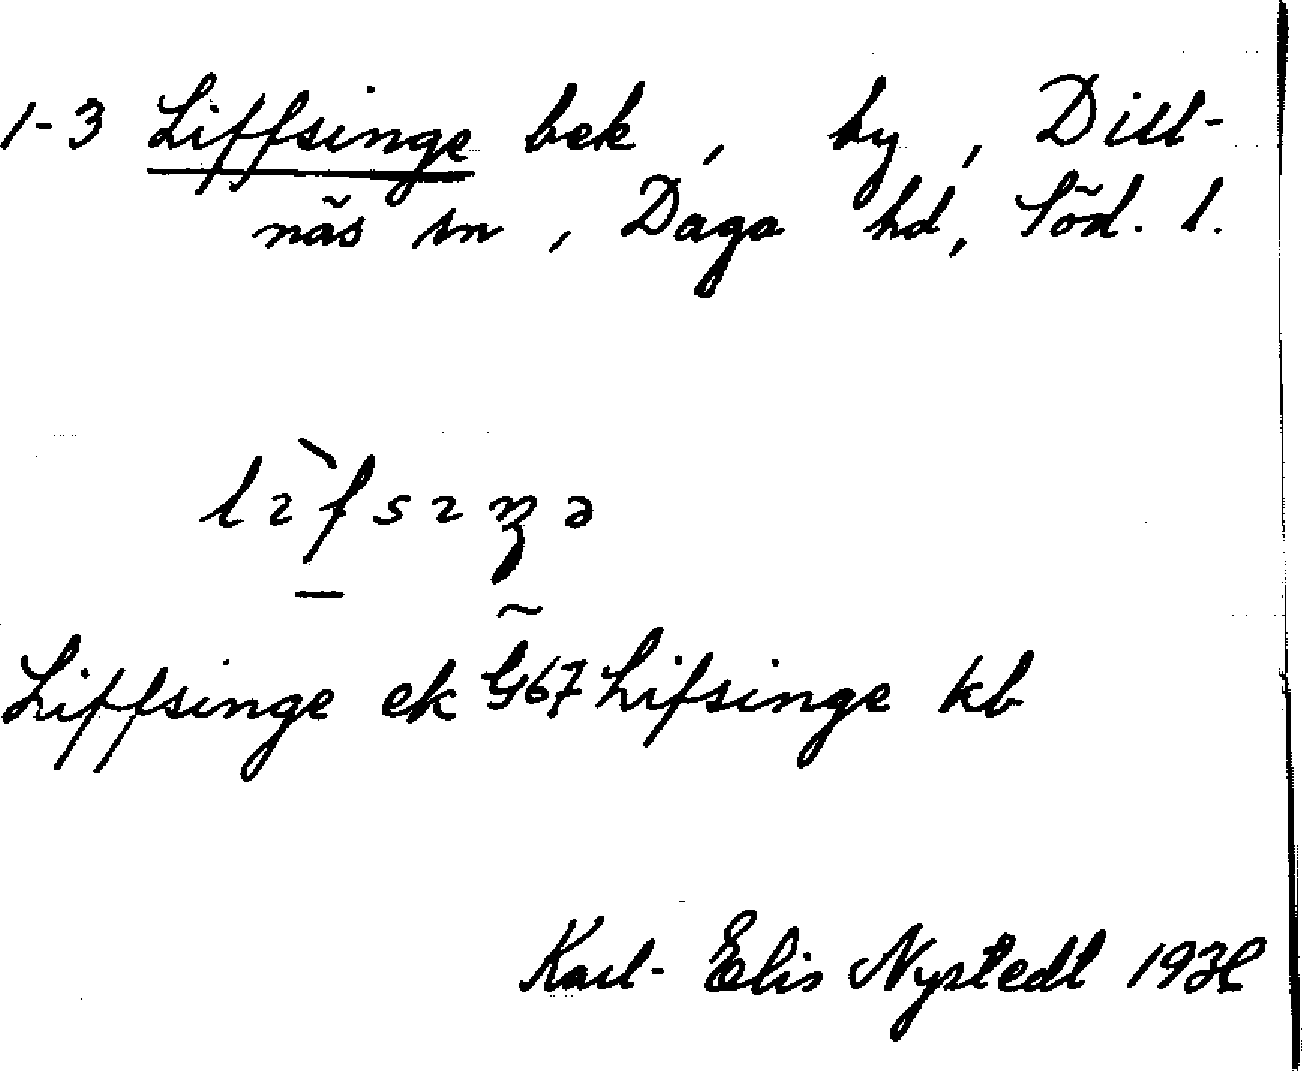 1-3 Liffsinge bek, by, Dill-
näs sn, Daga hd, Söd. l.
Liffsinge ek G67 Lifsinge kb
Karl-Elis Nystedt